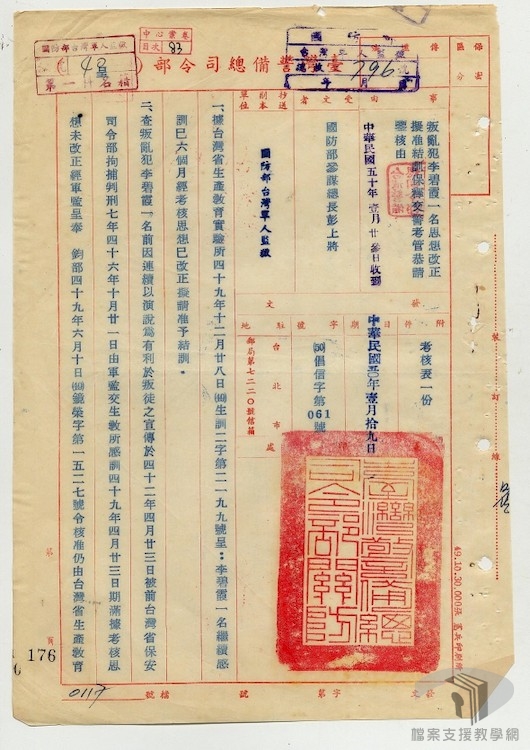 臺灣警備總司令部
國防部台灣軍人監獄
中心業卷
目次 83
事由
叛亂犯李碧霞一名思想改正
擬准結訓保釋交警考管恭請
鑒核由
中華民國五十年壹月廿叁日收到
受文者
國防部參謀總長彭上將
抄送副本單位
國防部台灣軍人監獄
附件
考核表一份
日期
中華民國50年壹月拾九日
字號
倡信字第061號
駐地
台北市
郵局第七二二〇號信箱
一、據台灣省生產教育實驗所四十九年十二月廿八日生訓二字第二一九九號呈：李碧霞一名繼續感
訓已六個月經考核思想已改正擬請准予結訓。
二、查叛亂犯李碧霞一名前因連續以演說為有利於叛徒之宣傳於四十二年四月廿三日被前台灣省保安
司令部拘捕判刑七年四十六年十月廿一日由軍監交生教所感訓四十九年四月廿三日期滿據考核思
想未改正經軍監呈奉 鈞部四十九年六月十日鐵榮字第一五二七號令核准仍由台灣省生產教育
臺灣警備總司令部關防
裝訂線
49.10.30,000張
第頁
176
0117
檔號
發文 字第 號
檔案支援教學網